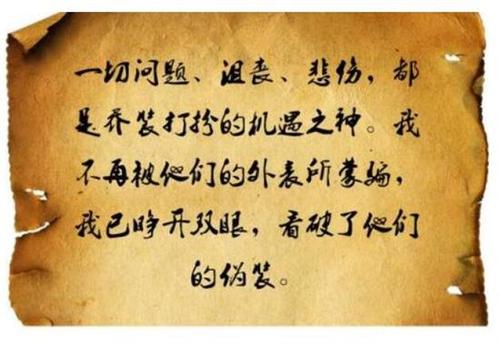 一切问题、沮丧、悲伤，都
是乔装打扮的机遇之神。我
不再被他们的外表所蒙骗，
我已睁开双眼，看破了他们
的伪装。